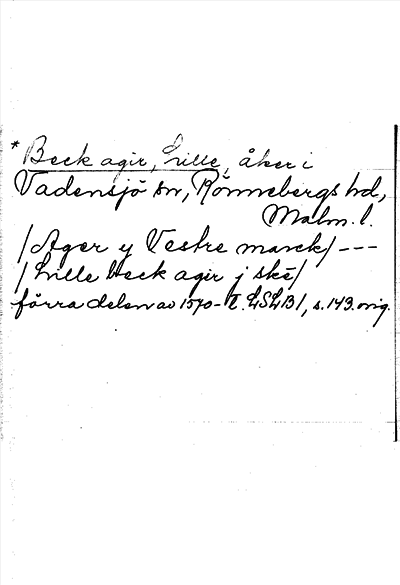 * Beck agir, Lille, åker i
Vadensjö sn, Rönnebergs hd,
Malm. l.
/Ager y Vestre marck/ ---
/Lille beck agir j ske/
förra delen av 1570-t. LSLB1, s. 143. orig.